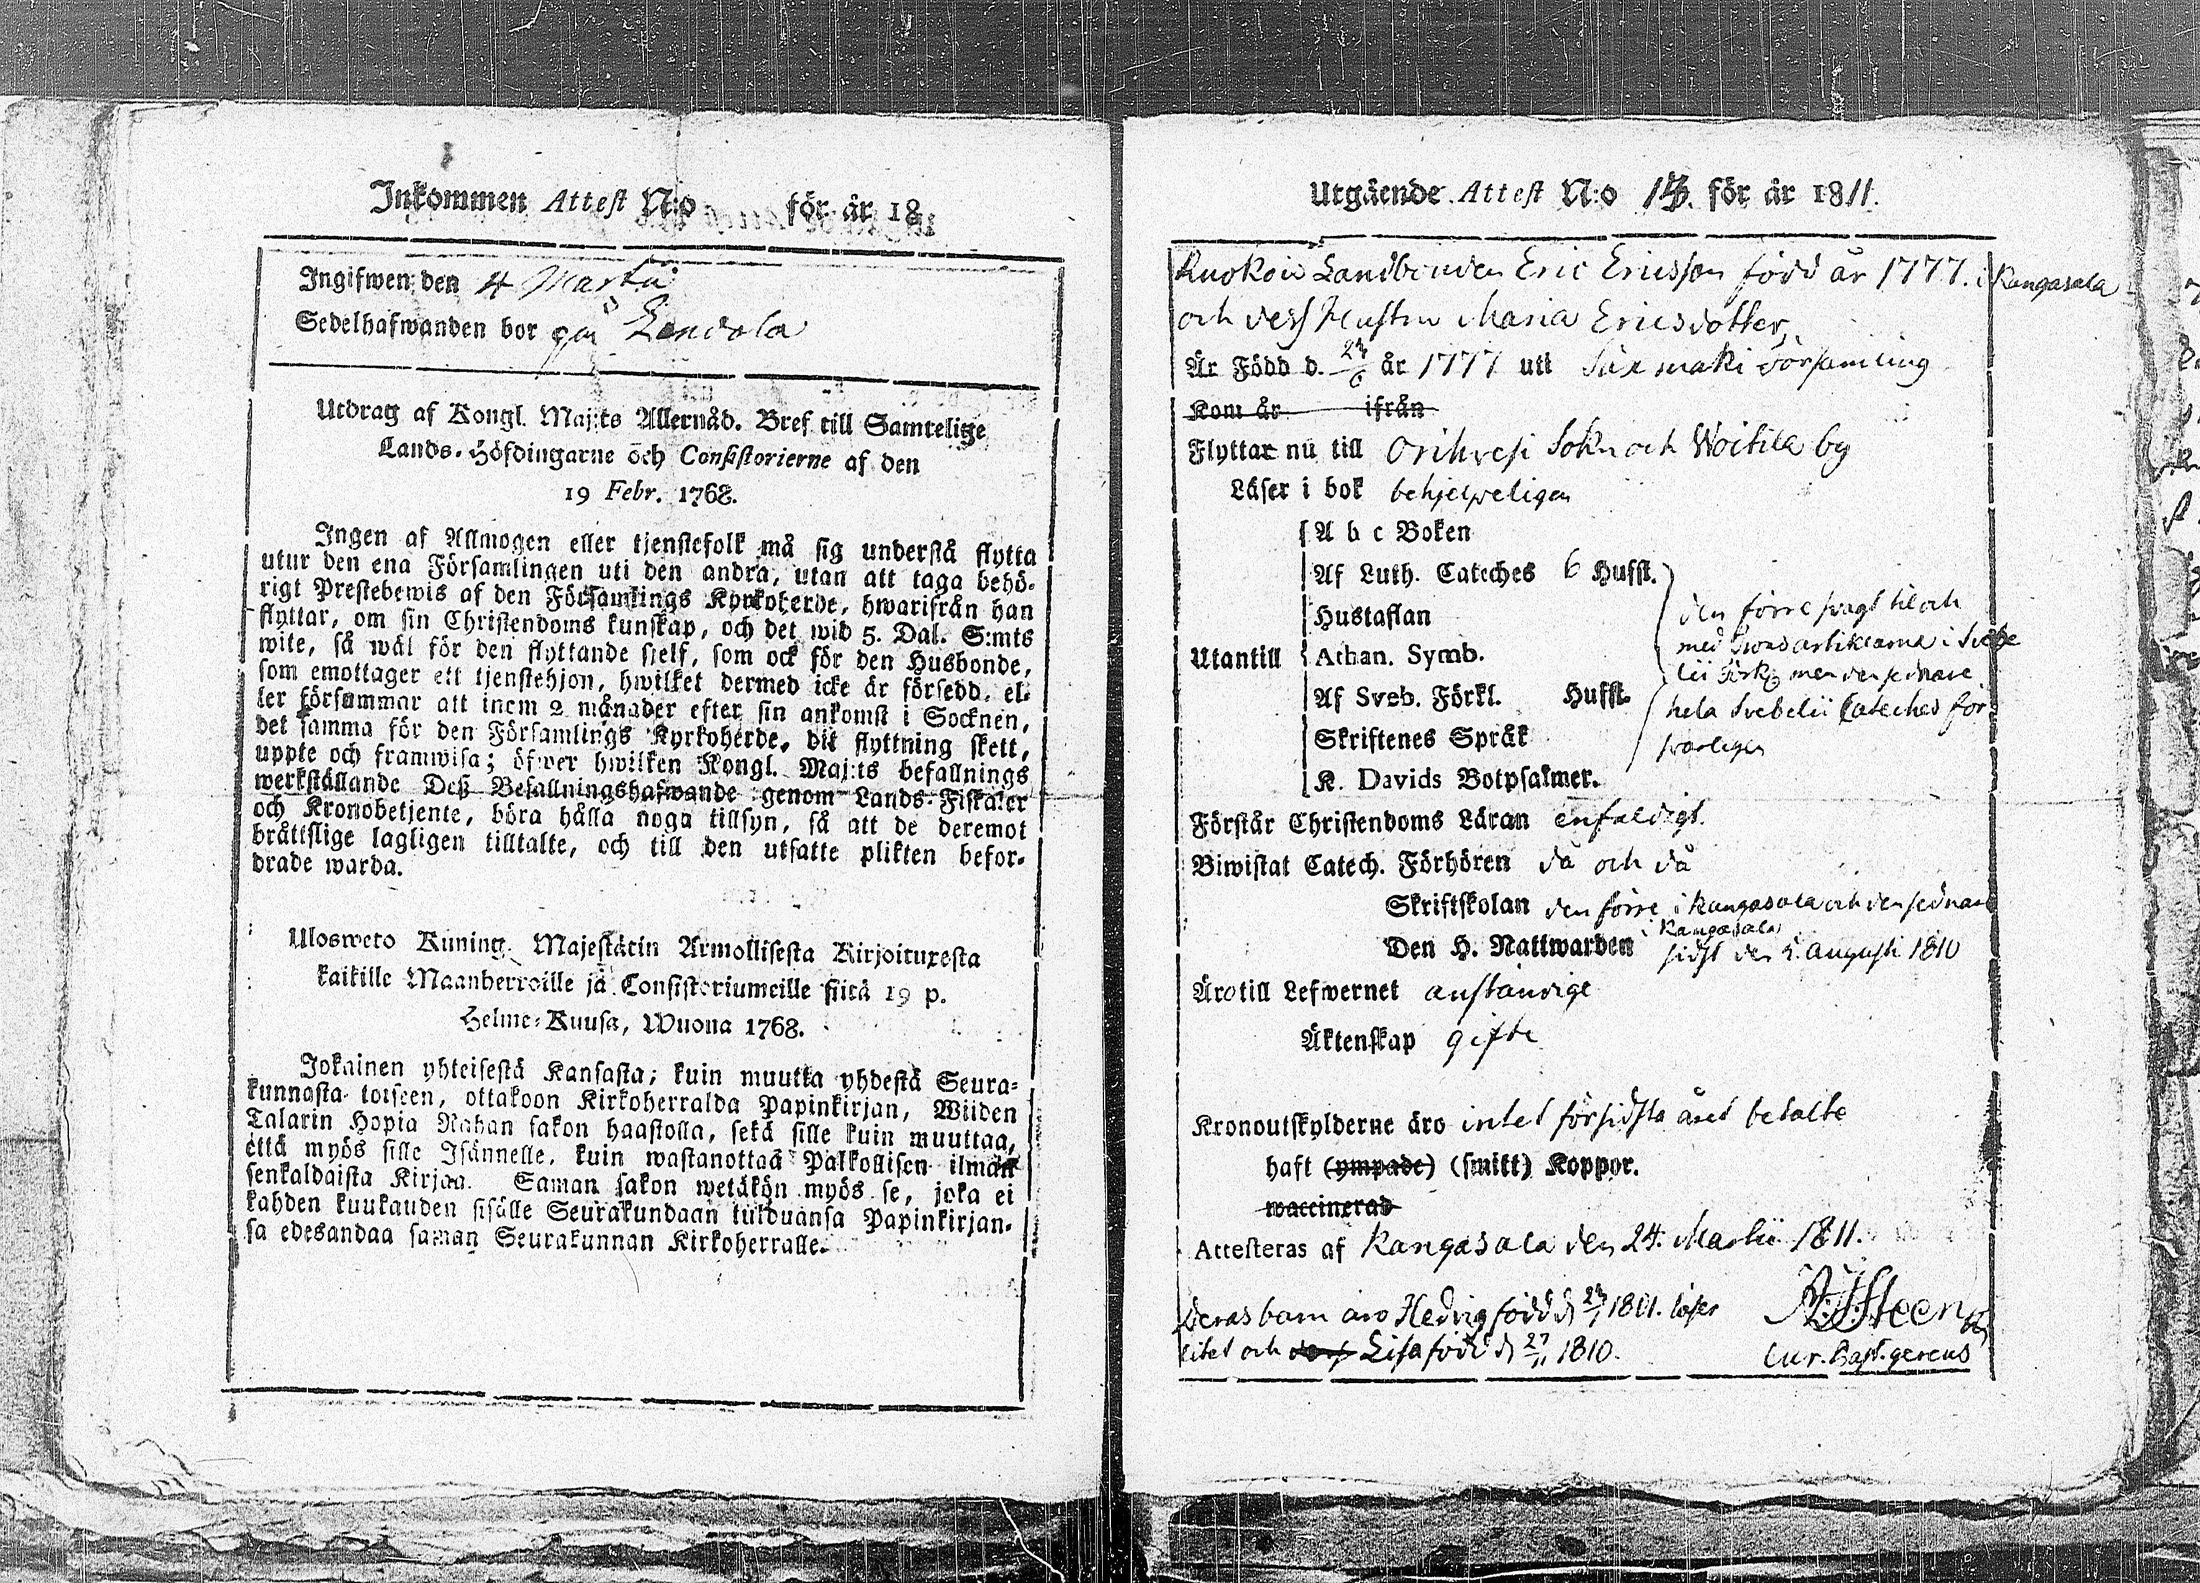 Inkommen Attest N:o för år 18
Ingifwen den 4 Martii
Sedelhafwanden bor på Lendola
Utdrag af Kongl. Maj:ts Allernåd. Bref till Samtelige
Lands-Höfdingarne och Consistorierne af den
19 Febr. 1768.
Ingen af Allmogen eller tjenstefolk må sig understå flytta
utur den ena Församlingen uti den andra, utan att taga behö-
rigt Prestebewis af den Församlings Kyrkoherde, hwarifrån han
flyttar, om sin Christendoms kunskap, och det wid 5. Dal. S:mts
wite, så wäl för den flyttande sjelf, som ock för den Husbonde,
som emottager ett tjenstehjon, hwilket dermed icke är försedd, el-
ler försummar att inom 2 månader efter sin ankomst i Socknen,
det samma för den Församlings Kyrkoherde, dit flyttning skett,
uppte och framwisa; öfwer hwilken Kongl. Maj:ts befallnings
werkställande Deß Befallningshafwande genom Lands-Fiskaler
och Kronobetjente, böra hålla noga tillsyn, så att de deremot
bråttslige lagligen tilltalte, och till den utsatte plikten befor-
drade warda.
Ulosweto Kuning. Majestätin Armollisesta Kirjoituxesta
kaikille Maanherroille ja Consistoriumeille siitä 19 p.
Helme-Kuusa, Wuona 1768.
Jokainen yhteisestä Kansasta; kuin muutta yhdestä Seura-
kunnasta toiseen, ottakoon Kirkoherralda Papinkirjan, Wiiden
Talarin Hopia Rahan sakon haastolla, sekä sille kuin muuttaa,
että myös sille Isännelle, kuin wastanottaa Palkollisen ilman
senkaldaista Kirjaa. Saman sakon wetäkön myös se, joka ei
kahden kuukauden sisälle Seurakundaan tulduansa Papinkirjan-
sa edesandaa saman Seurakunnan Kirkoherralle.
Utgående Attest N:o 13. för år 1811.
Landbonden Eric Ericsson född år 1777. i Kangasala
och dess Hustru Maria Ericsdotter,
Är Född d. 24/6 år 1777 uti Säxmäki församling
Kom år ifrån
Flyttar nu till Orihvesi Sokn och Woitila by
Läser i bok behjelpeligen
A b c Boken
Af Luth. Cateches 6 Hufst.
Hustaflan
Utantill Athan. Symb.
Af Sveb. Förkl. Hufst.
Skriftenes Språk
K. Davids Botpsalmer.
den förre svagt til och
med Trons artiklarna i Svebe
lii Förkl. men den sednare
hela Svebelii Cateches för
svarligen
Förstår Christendoms Läran enfaldigt.
Biwistat Catech. Förhören då och då
Skriftskolan den förre i Kangasala och den sednare
i Kangasala
Den H. Nattwarden sidst den 5. Augusti 1810
Äro till Lefwernet anständige
Äktenskap gifte
Kronoutskylderne äro intet för sidsta året betalte
haft (ympade) (smitt) Koppor.
waccinerad
Attesteras af Kangasala den 24. Martii 1811.
Deras barn äro Hedvig född d 24/1 1801. läser
litet och Lisa född d 27/11 1810.
Steen
Cur. Past. gerens